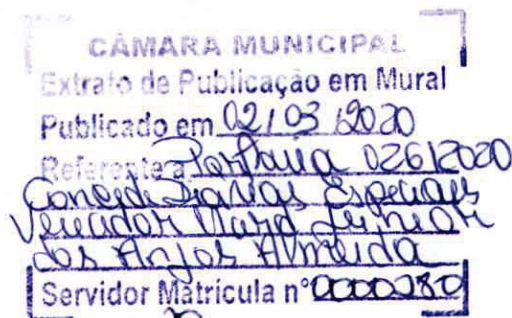 CÂMARA MUNICIPAL
Extrato de Publicação em Mural
Publicado em 02/03/2020
Referente a Portaria 026/2020
Concede Diárias Especiais
Vereador Mard Junior
dos Anjos Almeida
Servidor Matrícula nº 0000280